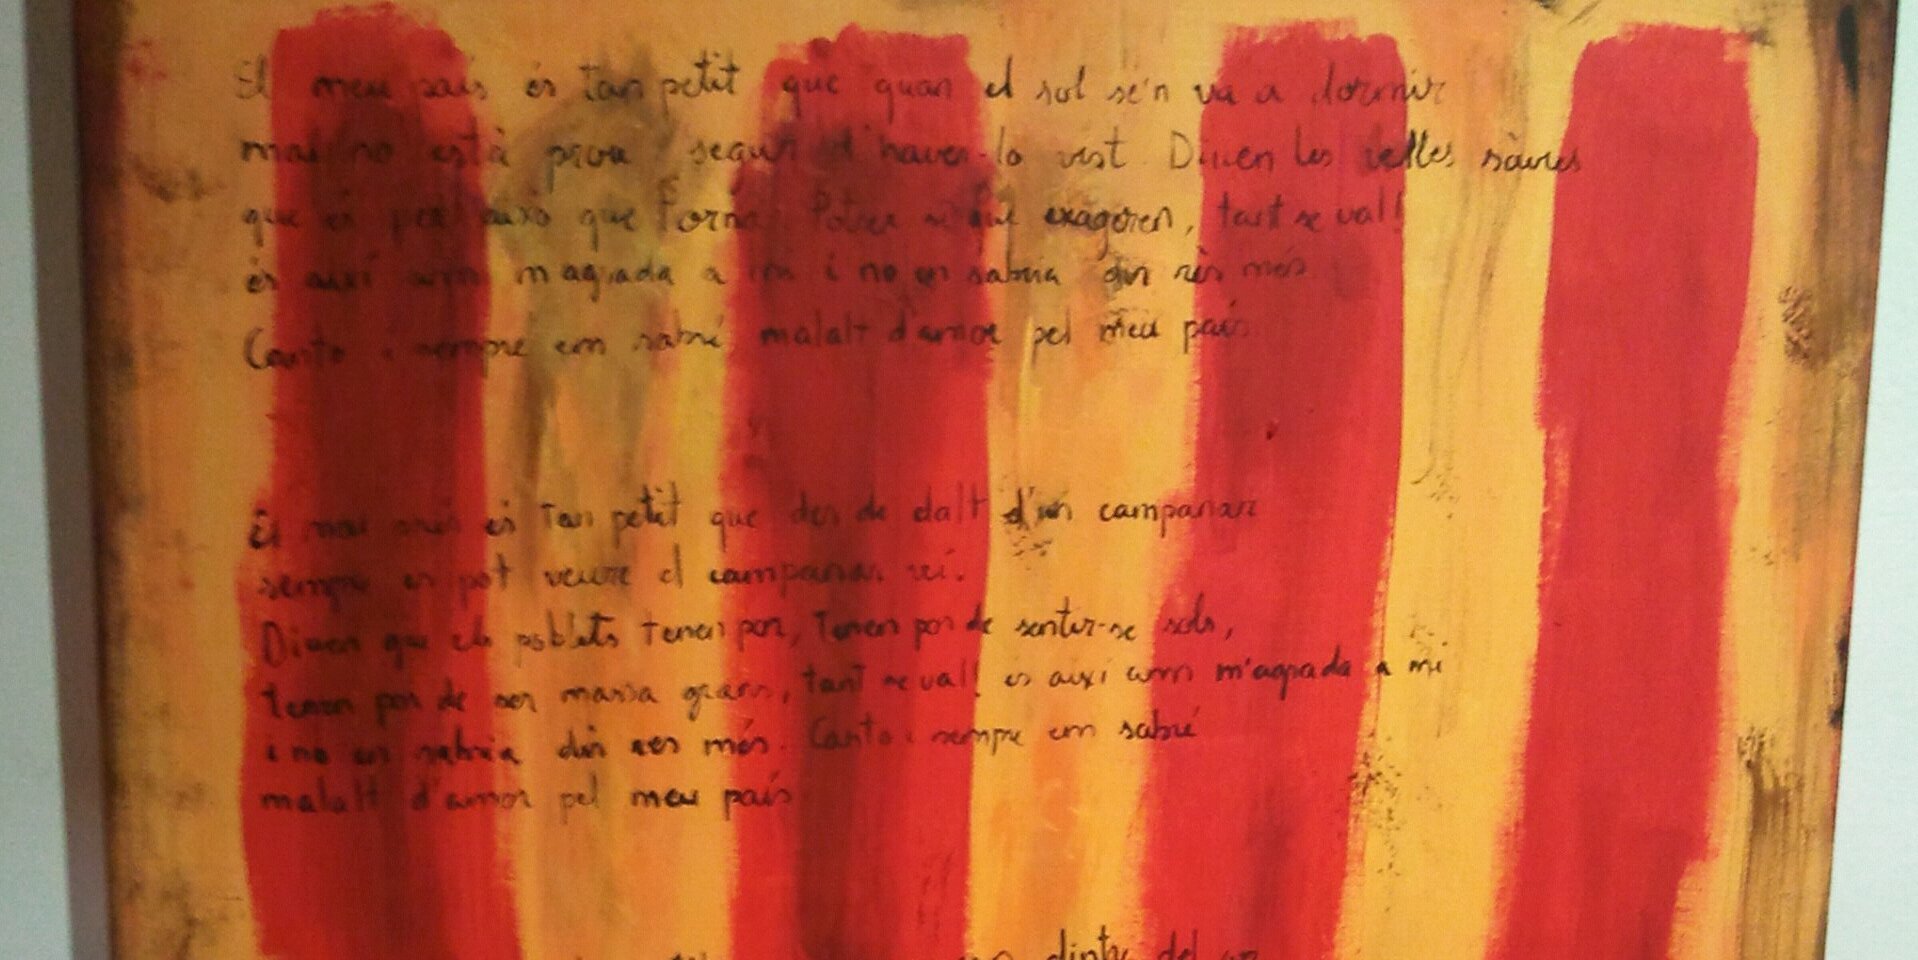 El meu país és tan petit que quan el sol se'n va a dormir
mai no està prou segur d'haver-lo vist Diuen les velles sàvies
que és per això que torna. Potser sí que exageren, tant se val!
és així com m'agrada a mi i no en sabria dir rès més
Canto i sempre em sabré malalt d'amor pel meu país
El meu país és tan petit que des de dalt d'un campanar
sempre es pot veure el campanar veí.
Diuen que els poblets tenen por, tenen por de sentir-se sols,
tenen por de ser massa grans, tant se val! és així com m'agrada a mi
i no en sabria dir res més. Canto i sempre em sabré
malalt d'amor pel meu país
dintre del